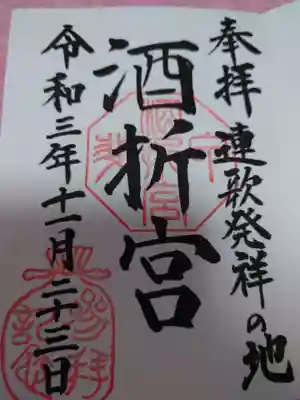 奉拝 連歌発祥の地
酒折宮
令和三年十一月二十三日
参拝